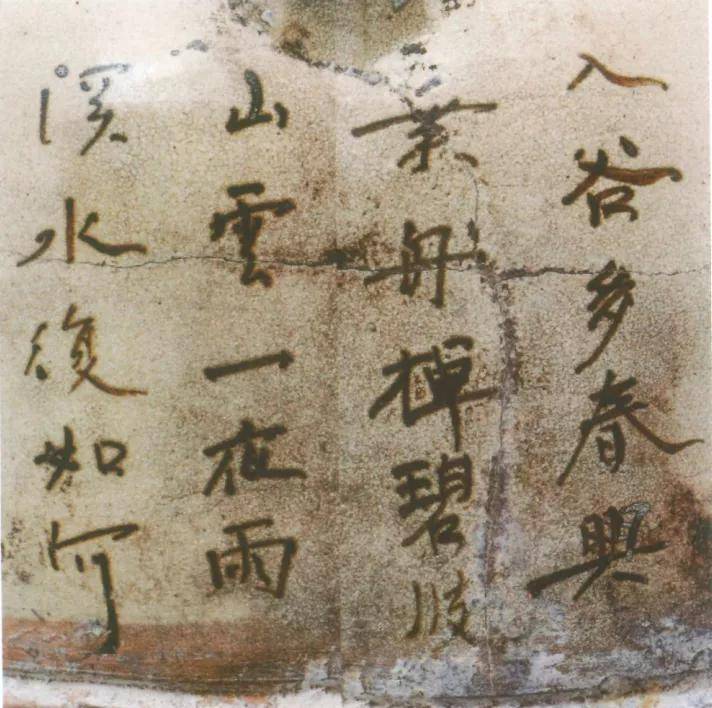 入谷多春興
乗舟棹碧波
山雲一夜雨
溪水復如何